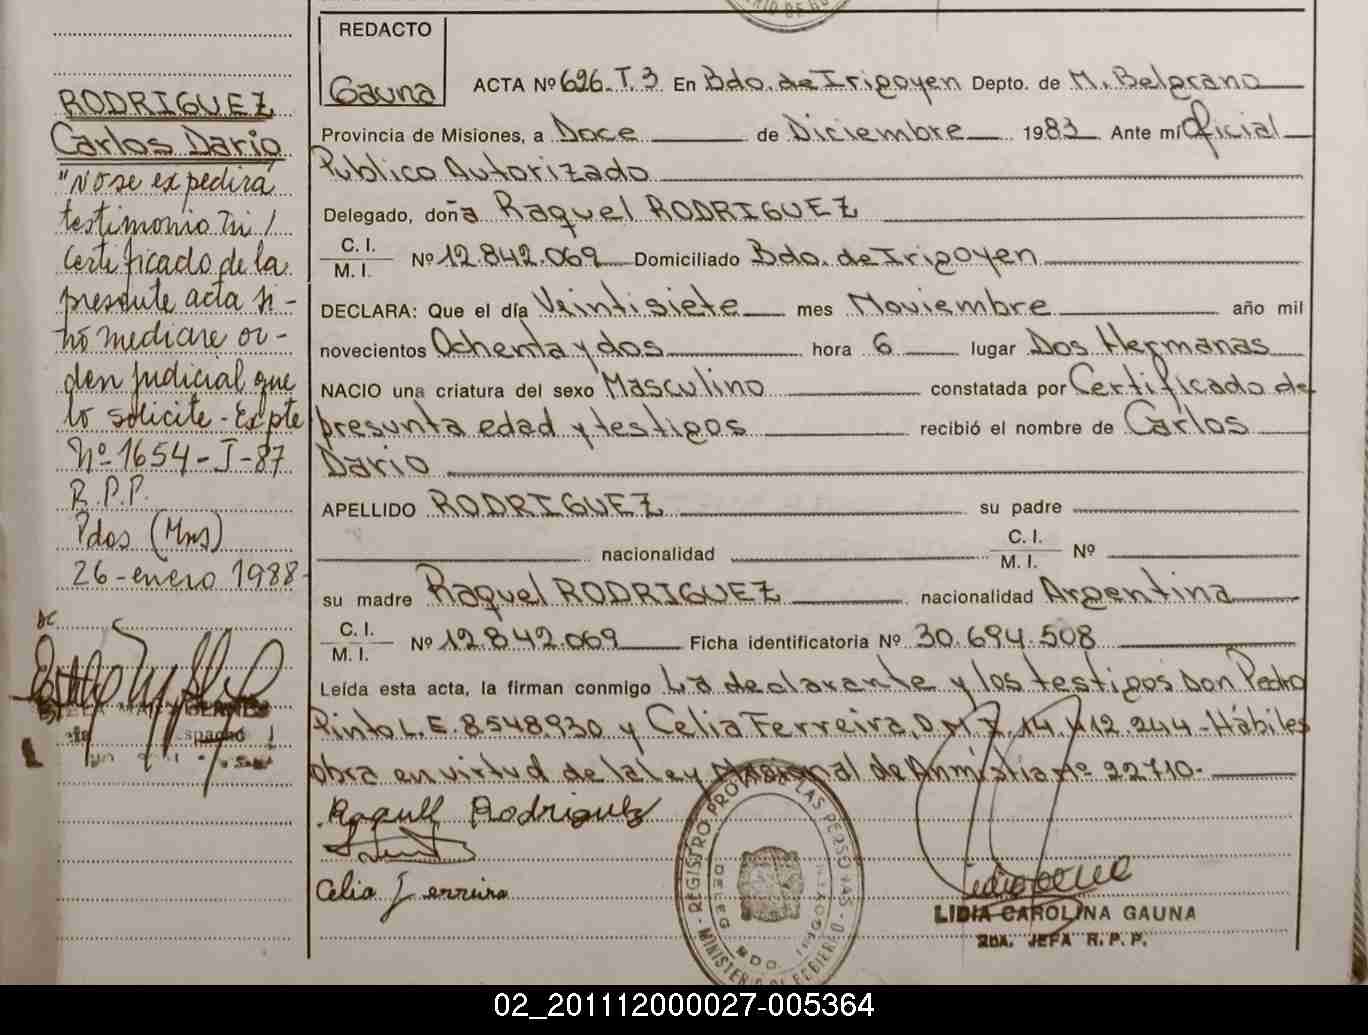 RODRIGUEZ
Carlos Dario
"No se expedirá
testimonio ni /
Certificado de la
presente acta si -
no mediare or -
den judicial que
lo solicite - Expte
Nº 1654 - J - 87
R.P.P.
Pdas (Mns)
26 - enero 1988 -
REDACTO
Gauna
ACTA Nº 626. T. 3 En Bdo. de Irigoyen Depto. de M. Belgrano
Provincia de Misiones, a Doce de Diciembre 1983 Ante mí Oficial
Publico Autorizado
Delegado, doña Raquel RODRIGUEZ
C. I.
M. I.
Nº 12.842.069 Domiciliado Bdo. de Irigoyen
DECLARA: Que el día Veintisiete mes Noviembre año mil
novecientos Ochenta y dos hora 6 lugar Dos Hermanas
NACIO una criatura del sexo Masculino constatada por Certificado de
presunta edad y testigos recibió el nombre de Carlos
Dario
APELLIDO RODRIGUEZ su padre
nacionalidad
C. I.
M. I.
Nº
su madre Raquel RODRIGUEZ nacionalidad Argentina
C. I.
M. I.
Nº 12.842.069 Ficha identificatoria Nº 30.694.508
Leída esta acta, la firman conmigo La declarante y los testigos Don Pedro
Pinto L.E. 8548930 y Celia Ferreira, D.M.I. 14.112.244 - Hábiles
obra en virtud de la ley Nacional de Anmistia Nº 22710 -
Raquel Rodriguez
Celia Ferreira
REGISTRO PROV. DE LAS PERSONAS
MINISTERIO DE GOBIERNO
DELEG. BDO. IRIGOYEN
LIDIA CAROLINA GAUNA
2DA. JEFA R. P. P.
02_201112000027-005364